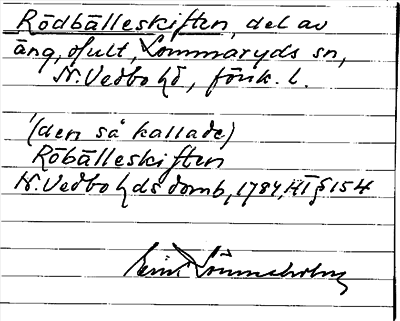 Rödbälleskiften, del av
äng, ofult, Lommaryds sn,
N. Vedbo hd, Jönk. l.
(den så kallade)
Röbälleskiften
N. Vedbo hds domb, 1784, HT § 154